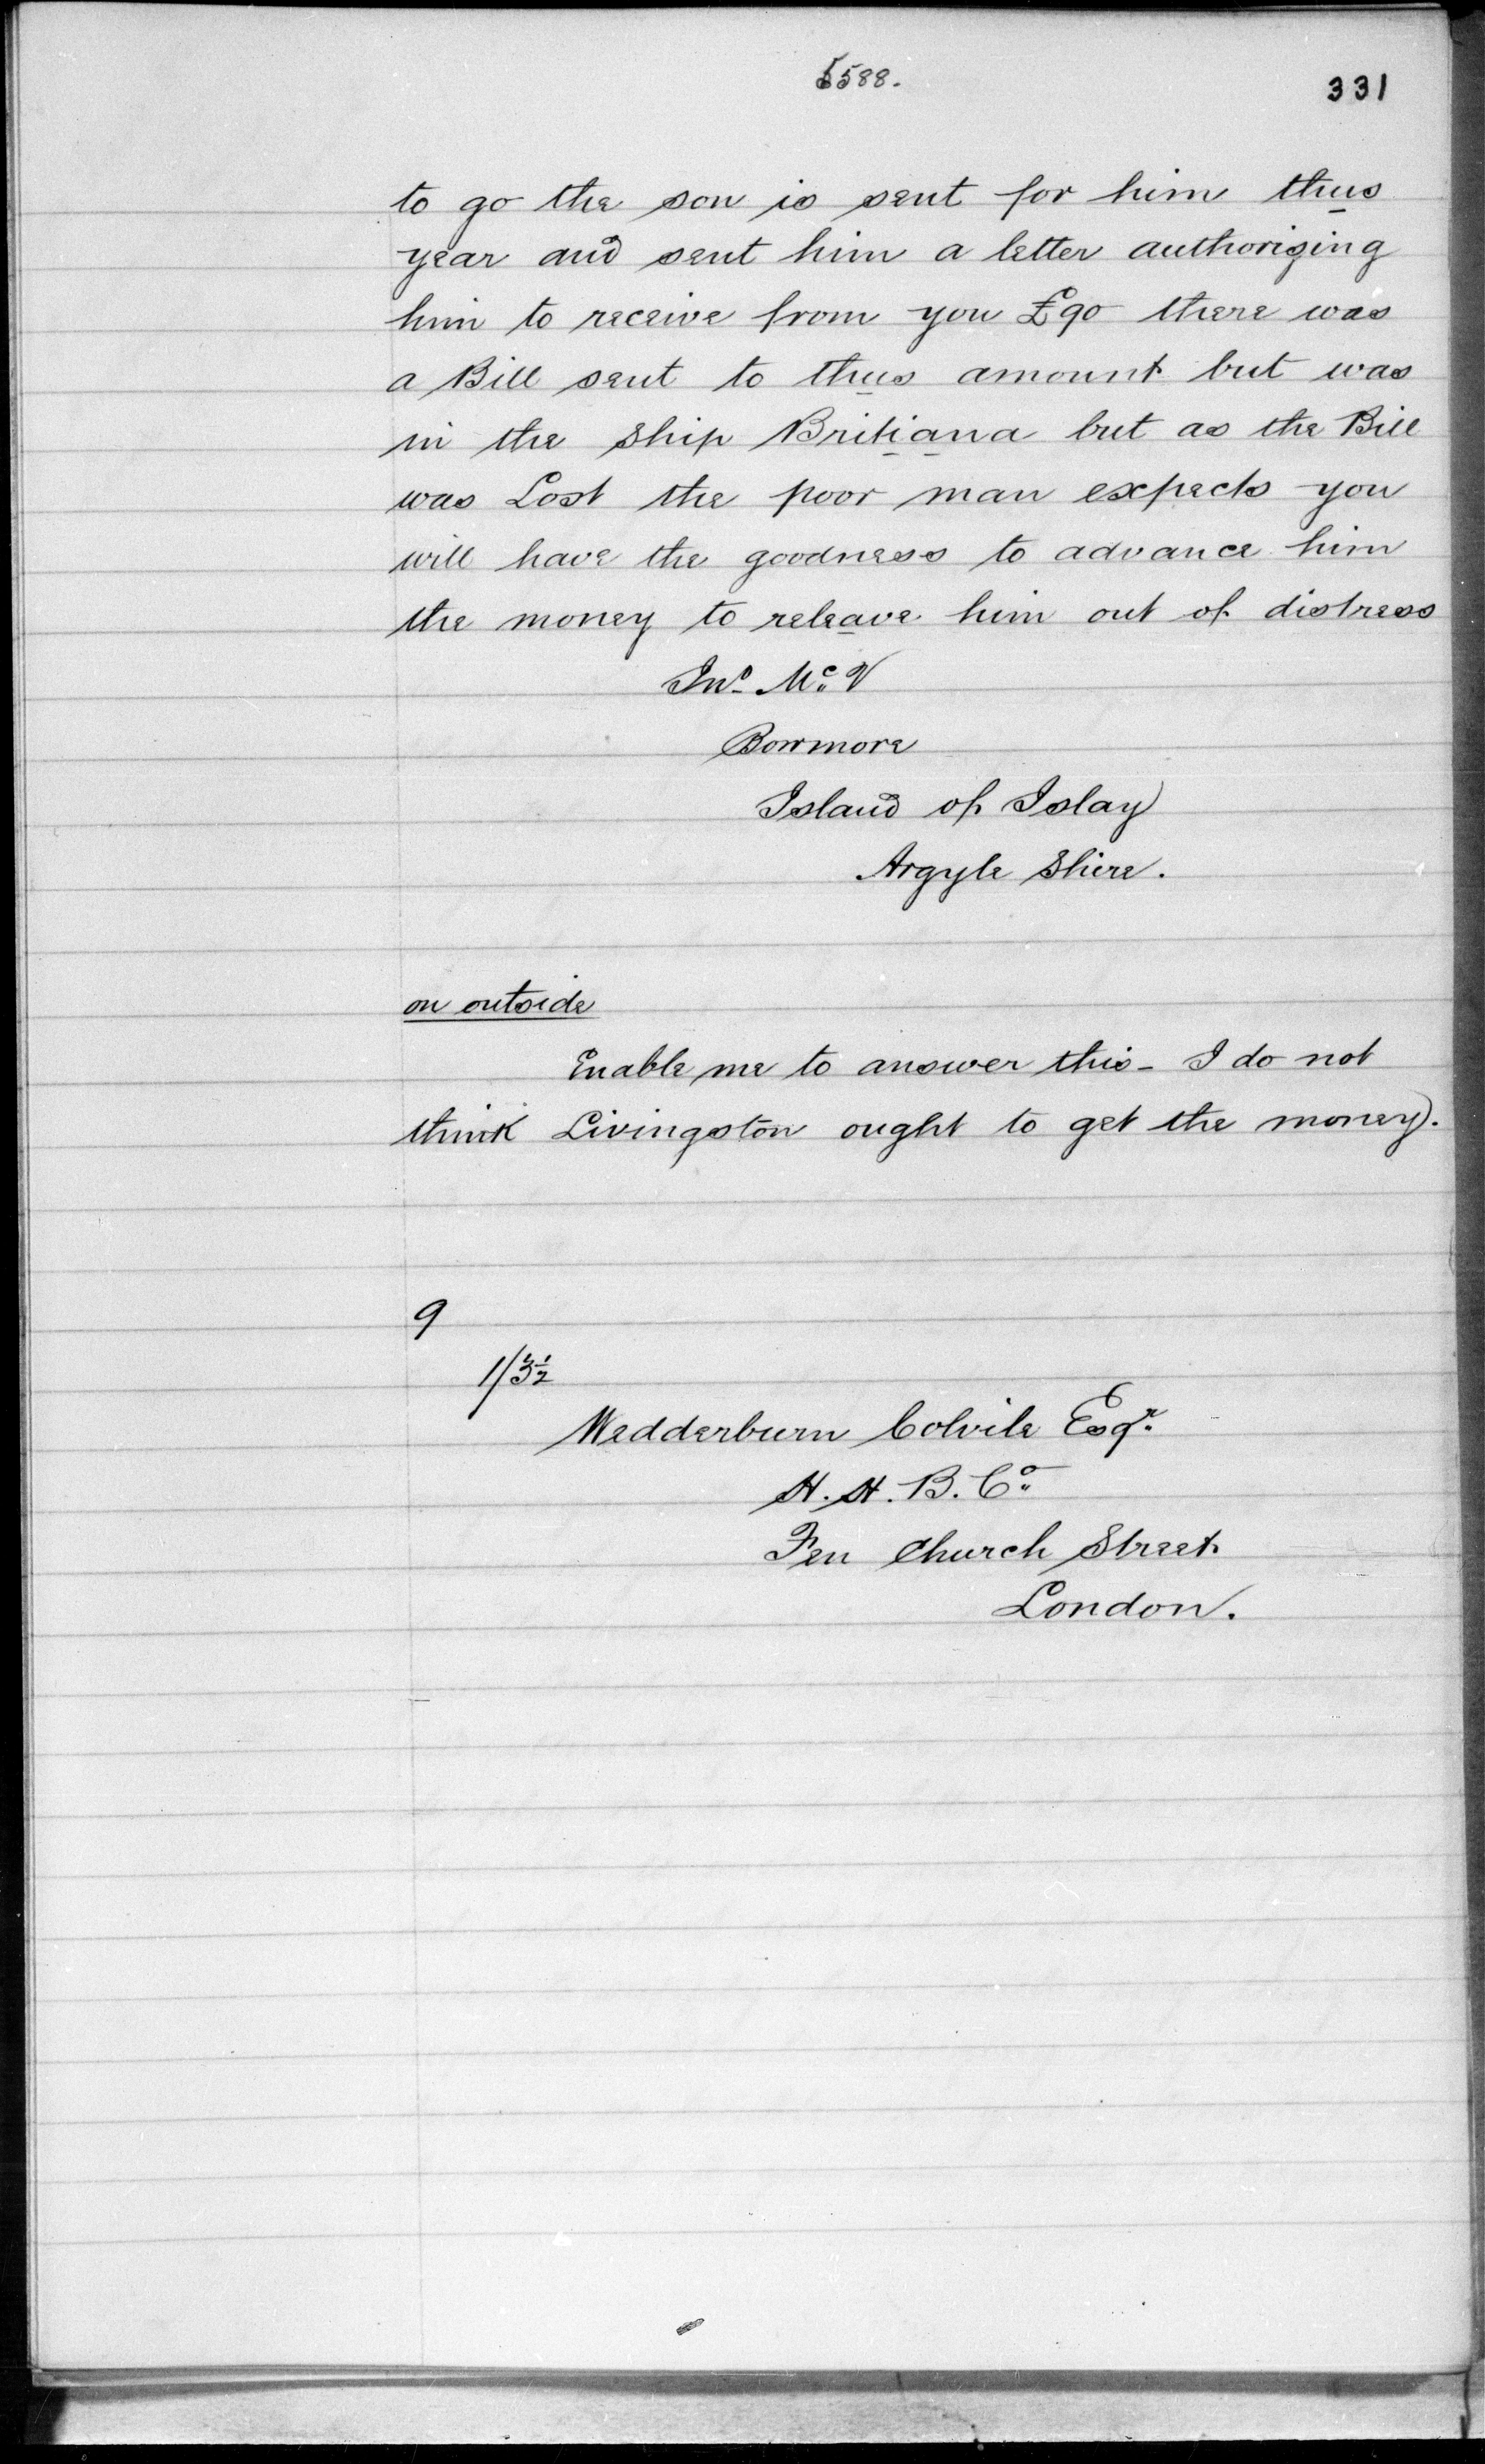 5588.
331
to go the son is sent for him thus
year and sent him a letter authorizing
him to receive from you £90 there was
a Bill sent to thus amount but was
in the Ship Britiana but as the Bill
was Lost the poor man expects you
will have the goodness to advance him
the money to releave him out of distress
Jno. Mc. V
Bowmore
Island of Islay
Argyle Shire.
on outside
Enable me to answer this - I do not
think Livingston ought to get the money.
9
1/3½
Wedderburn Colvile Esqr.
H. H. B. Co.
Fen Church Street
London.